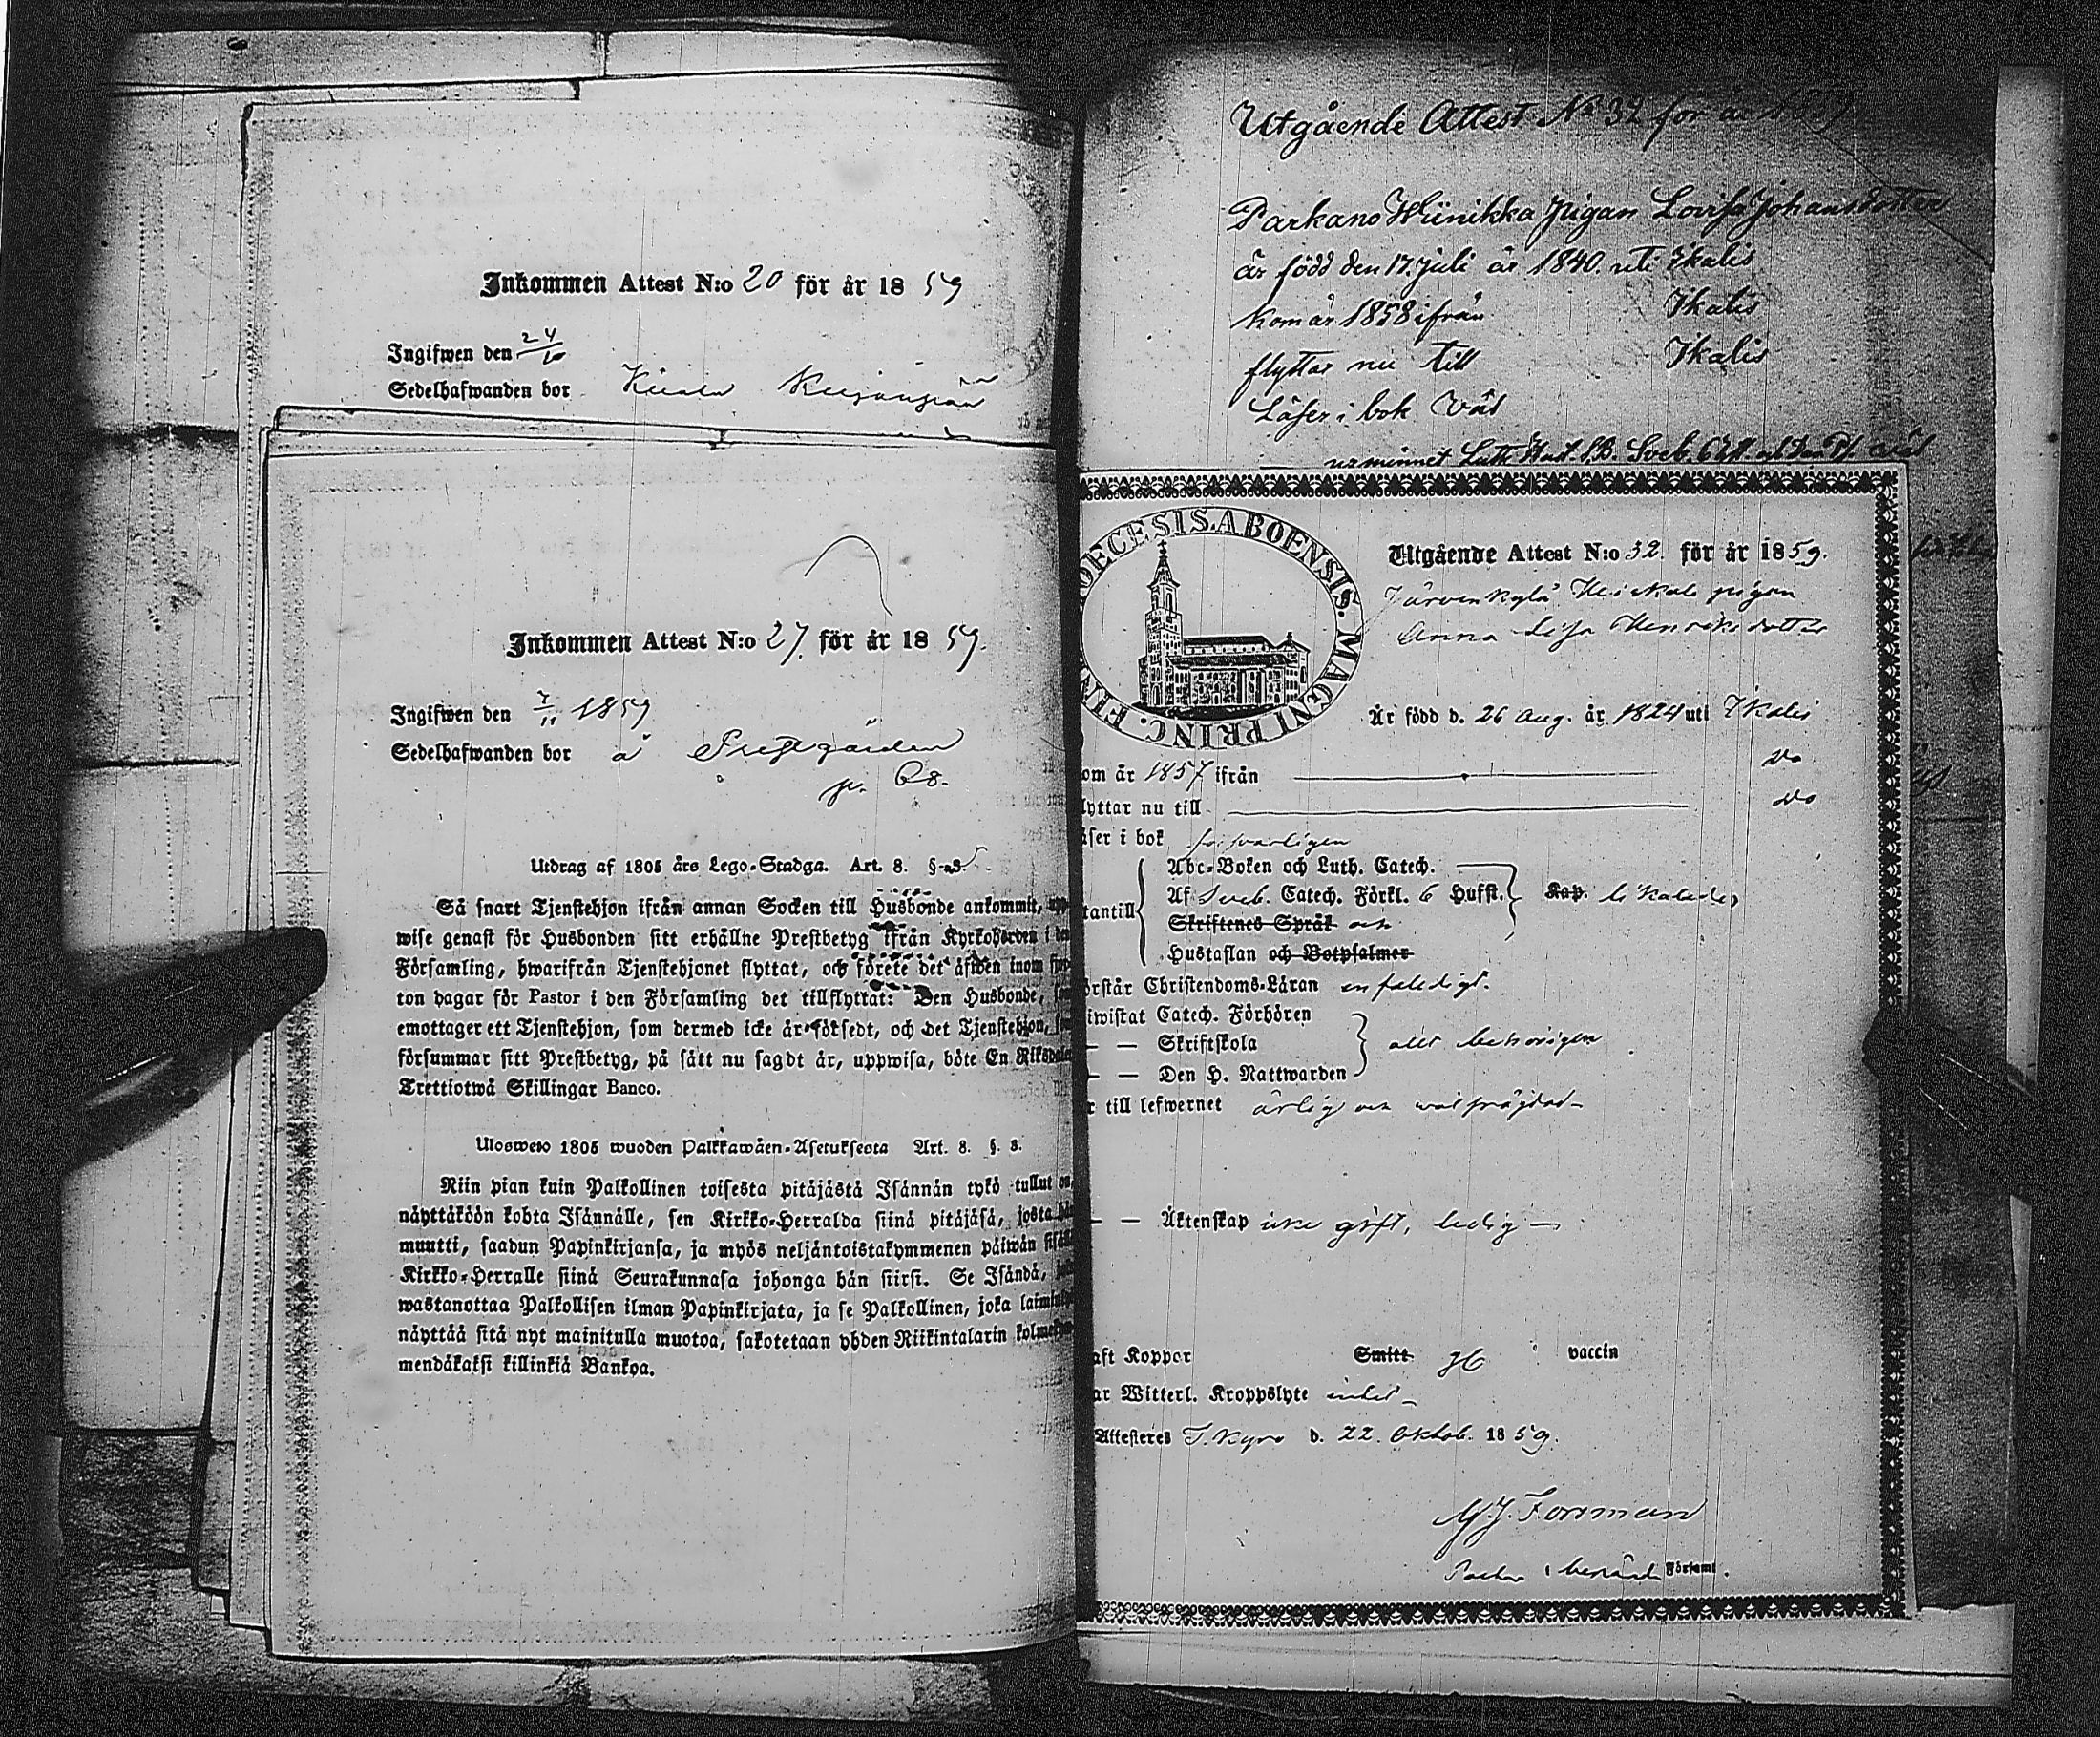 Inkommen Attest N:o 20 för år 18 59
Ingifwen den 24/10
Sedelhafwanden bor
Inkommen Attest N:o 27. för år 18 59.
Ingifwen den 7/11 1859
Sedelhafwanden bor å Prestgården
p. 68.
Utdrag af 1805 års Lego-Stadga. Art. 8. §
Så snart Tjenstehjon ifrån annan Socken till Husbonde ankommit, upp-
wise genast för Husbonden sitt erhållne Prestbetyg ifrån Kyrkoherden i den
Församling, hwarifrån Tjenstehjonet flyttat, och förete det äfwen inom fjor-
ton dagar för Pastor i den Församling det tillflyttat: Den Husbonde, som
emottager ett Tjenstehjon, som dermed icke är försedt, och det Tjenstehjon, som
försummar sitt Prestbetyg, på sätt nu sagdt är, uppwisa, böte En Riksdaler
Trettiotwå Skillingar Banco.
Ulosweto 1805 wuoden Palkkawäen-Asetuksesta Art. 8. §. 3.
Niin pian kuin Palkollinen toisesta pitäjästä Isännän tykö tullut on,
näyttäköön kohta Isännälle, sen Kirkko-Herralda siinä pitäjäsä, josta hän
muutti, saadun Papinkirjansa, ja myös neljäntoistakymmenen päiwän sisällä
Kirkko-Herralle siinä Seurakunnasa johonga hän siirsi. Se Isändä, joka
wastanottaa Palkollisen ilman Papinkirjata, ja se Palkollinen, joka laimin
näyttää sitä nyt mainitulla muotoa, sakotetaan yhden Riikintalarin kolme
mendäkaksi killinkiä Bankoa.
Utgående Attest No 32 för år 1859
Parkano Hiinikka Pigan Lovisa Johansdotter
är född den 17. Juli år 1840. uti Ikalis
Kom år 1858 ifrån Ikalis
flyttar nu till Ikalis
Läser i bok väl
ur minnet Luth. Hust. S.B. Sveb.
DIOECESIS. ABOENSIS. MAGNI PRINC. FIN
Utgående Attest N:o 32. för år 1859.
Järvenkylä Heiskala pigan
Anna Lisa Henriksdotter
Är född d. 26 Aug. år 1824 uti Ikalis
om år 1857 ifrån do
lyttar nu till do
äser i bok försvarligen
Abc-Boken och Luth. Catech.
Af Sveb. Catech. Förkl. 6 Hufst. Kap.
tantill
Skriftenes Språk och
Hustaflan och Botpsalmer
örstår Christendoms-Läran
iwistat Catech. Förhören
— — Skriftskola allt behörigen
— — Den H. Nattwarden
r till lefwernet ärlig och wälfrägdad
— — Äktenskap icke gift, ledig —
aft Koppor Smitt vaccin
ar Witterl. Kroppslyte intet
Attesteres T. Kyro d. 22. Oktob. 1859.
Forsman
Pastor i berörde Församl.